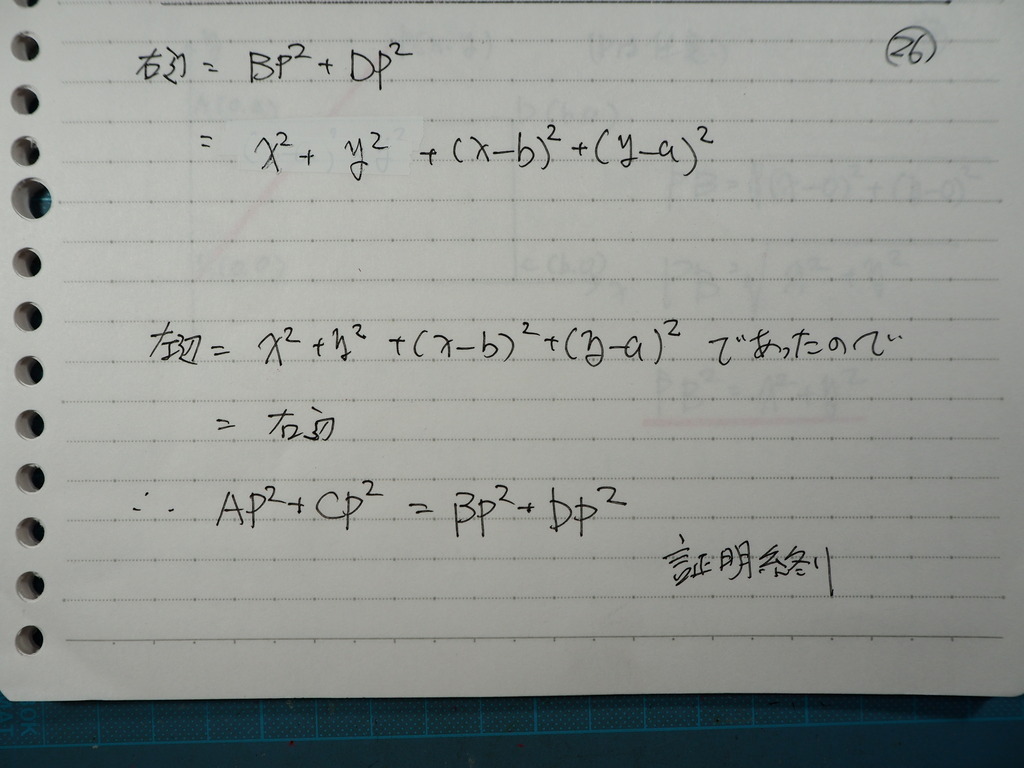 ㉖
右辺 = BP² + DP²
= x² + y² + (x-b)² + (y-a)²
左辺 = x² + y² + (x-b)² + (y-a)² であったので
= 右辺
∴ AP² + CP² = BP² + DP²
証明終り